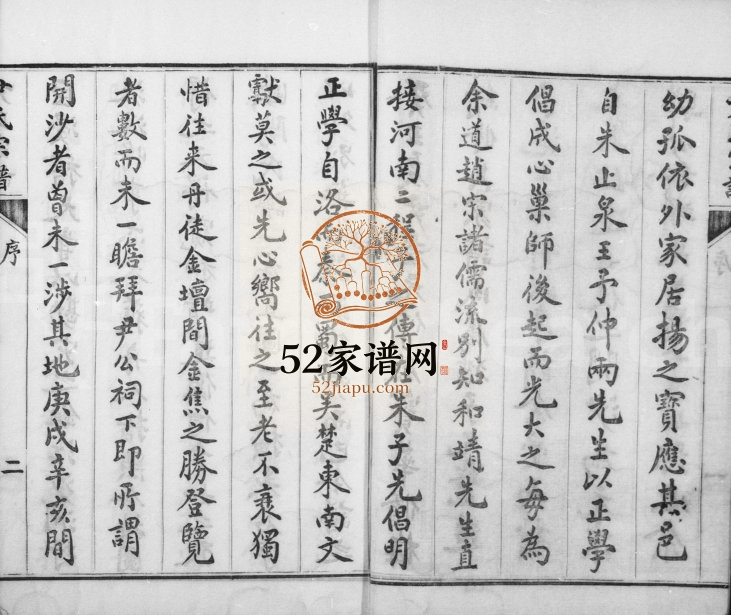 幼孤依外家居揚之寶應其邑
自朱止泉王予仲兩先生以正學
倡成心巢師後起而光大之每為
余道趙宗諸儒流別知和靖先生直
接河南二程子之傳 朱子先倡明
正學自洛 吳楚東南文
獻莫之或先心嚮往之至老不衰獨
惜往来丹徒金壇間金焦之勝登覽
者數而未一瞻拜尹公祠下即所謂
開沙者曾未一涉其地庚戌辛亥間
氏宗譜
序
二
52家谱网
52jiapu.com